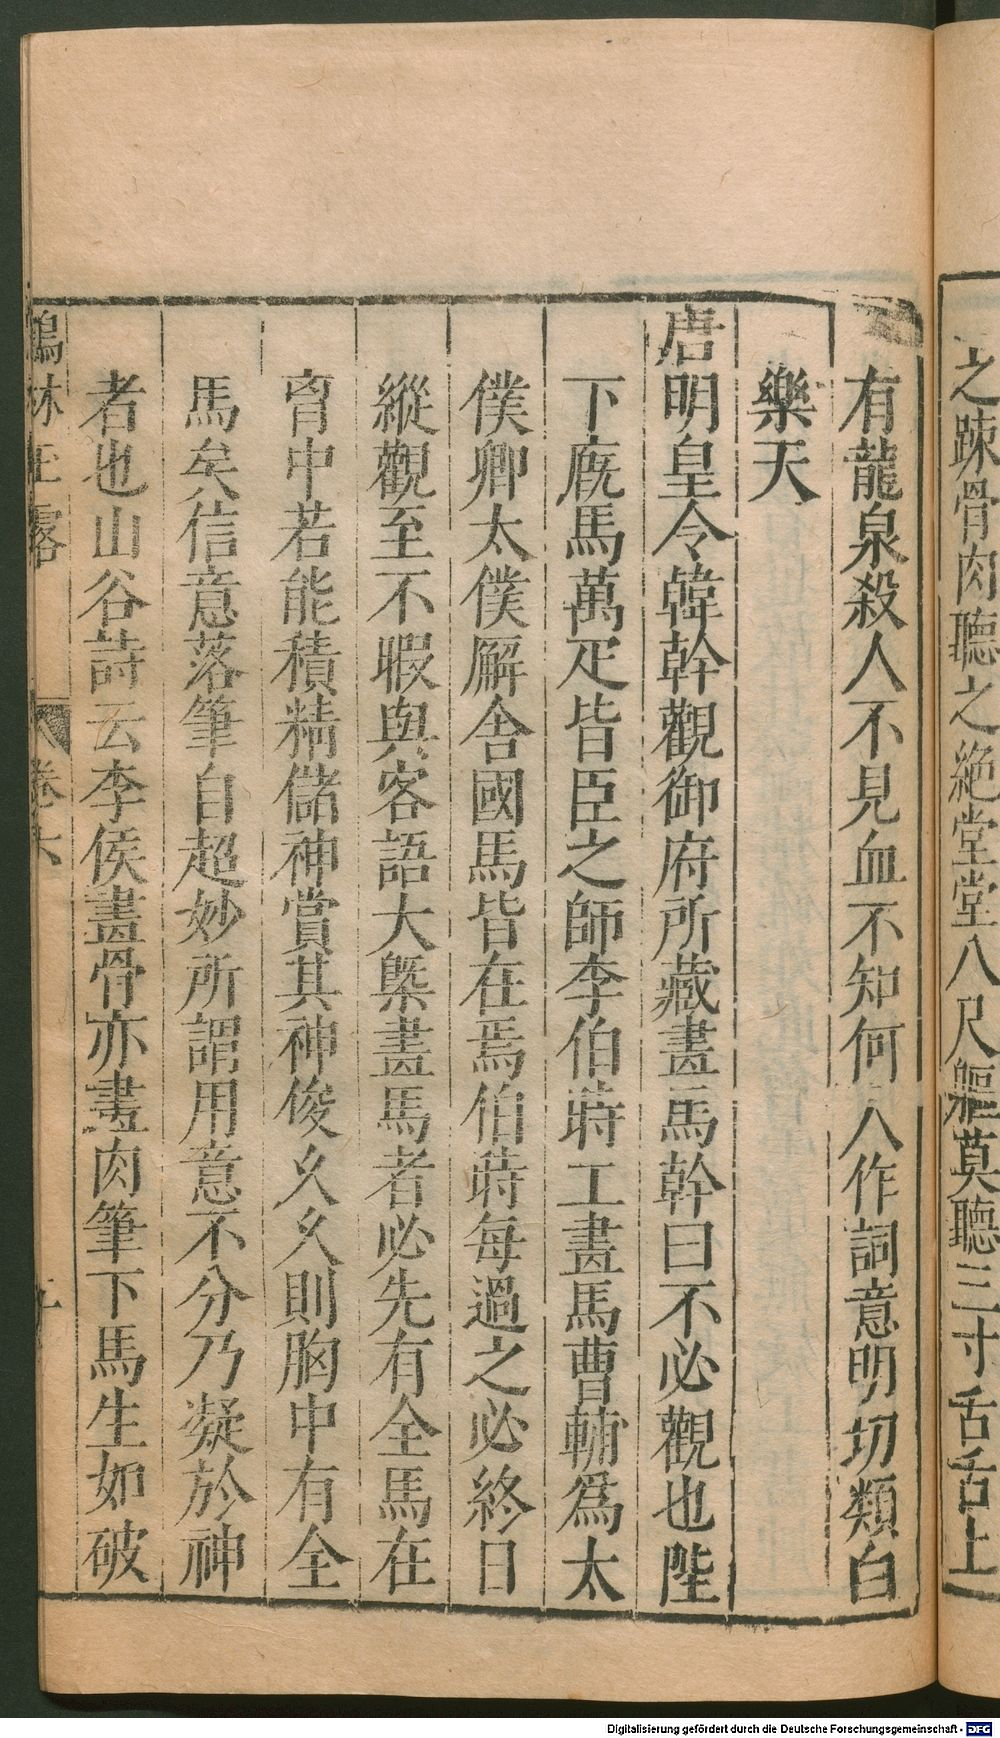 之踈骨肉聽之絶堂堂八尺軀莫聽三寸舌舌上
有龍泉殺人不見血不知何人作詞意明切類白
樂天
唐明皇令韓幹觀御府所藏畫馬幹曰不必觀也陛
下廐馬萬疋皆臣之師李伯蒔工畫馬曹輔爲太
僕卿太僕廨舍國馬皆在焉伯蒔每過之必終日
縱觀至不暇與客語大槩畫馬者必先有全馬在
胷中若能積精儲神賞其神俊久久則胸中有全
馬矣信意落筆自超妙所謂用意不分乃凝於神
者也山谷詩云李侯畫骨亦畫肉筆下馬生如破
鶴林玉露 卷六 九
Digitalisierung gefördert durch die Deutsche Forschungsgemeinschaft - DFG